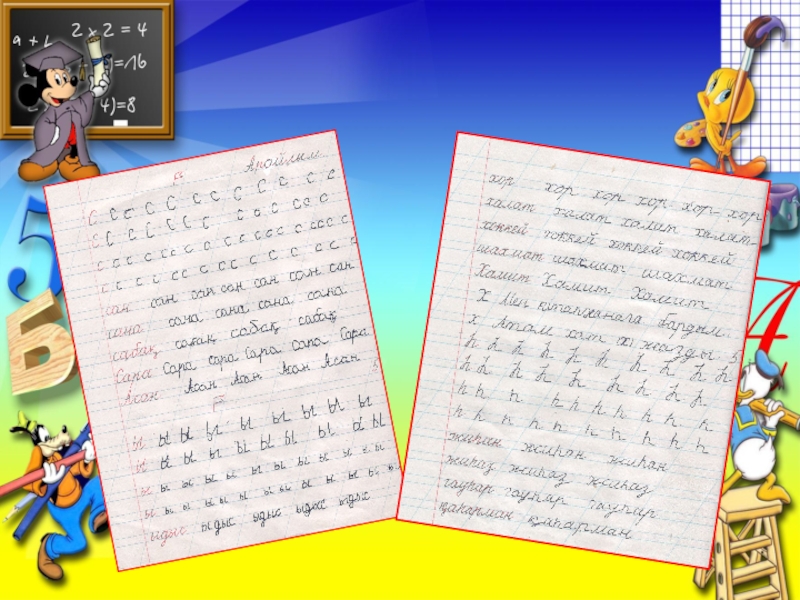 2 x 2 = 4
=16
4)=8
5
Б
А
с Арайлым
С С С С С С С С С С С С С
С С С С С С С С С С С С
с с с с с с с с с с с с с с с с с
с с с с с с с с с с с с с с
сан сан сан сан сан сан сан
сана сана сана сана сана
сабақ сабақ сабақ сабақ
Сара Сара Сара Сара Сара Сара
Асан Асан Асан Асан Асан
ы ы ы ы ы ы ы ы ы
ы ы ы ы ы ы ы ы ы ы
ы ы ы ы ы ы ы ы ы ы ы ы
ы ы ы ы ы ы ы ы ы ы ы ы
ыдыс ыдыс ыдыс ыдыс ыдыс
хор хор хор хор хор хор
халат халат халат халат
хоккей хоккей хоккей хоккей
шахмат шахмат шахмат
Хамит Хамит Хамит
Х Мен кітапханаға бардым.
х Атам хат жазды.
һ һ һ һ һ һ һ һ һ һ һ
һ һ һ һ һ һ һ һ һ
һ һ һ һ һ һ һ һ һ
һ һ һ һ һ һ һ һ
жиһан жиһан жиһан
жиһаз жиһаз жиһаз
гауһар гауһар гауһар
қаһарман қаһарман